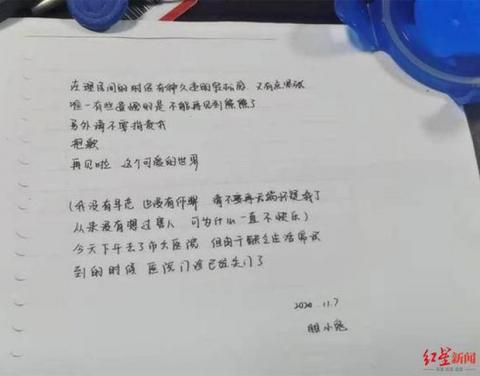 在理房间的时候有种久违的轻松感 又有点想哭
唯一有些遗憾的是 不能再见到熊熊了
另外请不要指责我
抱歉
再见啦 这个可爱的世界
(我没有早恋 也没有作弊 请不要再去 怀疑我了
从来没有想过害人 可为什么一直不快乐)
今天下午去了市大医院 但由于缺乏生活常识
到的时候 医院门诊已经关门了
2020.11.7
胆小鬼
红星新闻